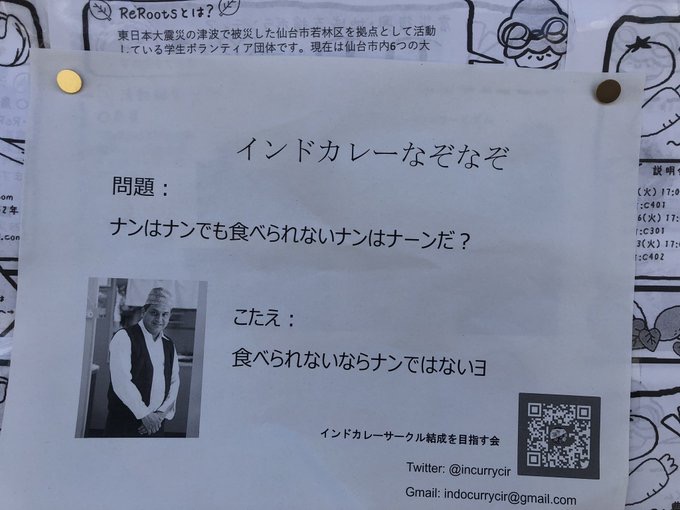 ReRootsとは?
東日本大震災の津波で被災した仙台市若林区を拠点として活動
している学生ボランティア団体です。現在は仙台市内6つの大
インドカレーなぞなぞ
問題：
ナンはナンでも食べられないナンはナーンだ？
こたえ：
食べられないならナンではないヨ
インドカレーサークル結成を目指す会
Twitter: @incurrycir
Gmail: indocurrycir@gmail.com
説明
(火) 17:0
:C401
(火) 17:
:C301
(火) 17:0
:C402